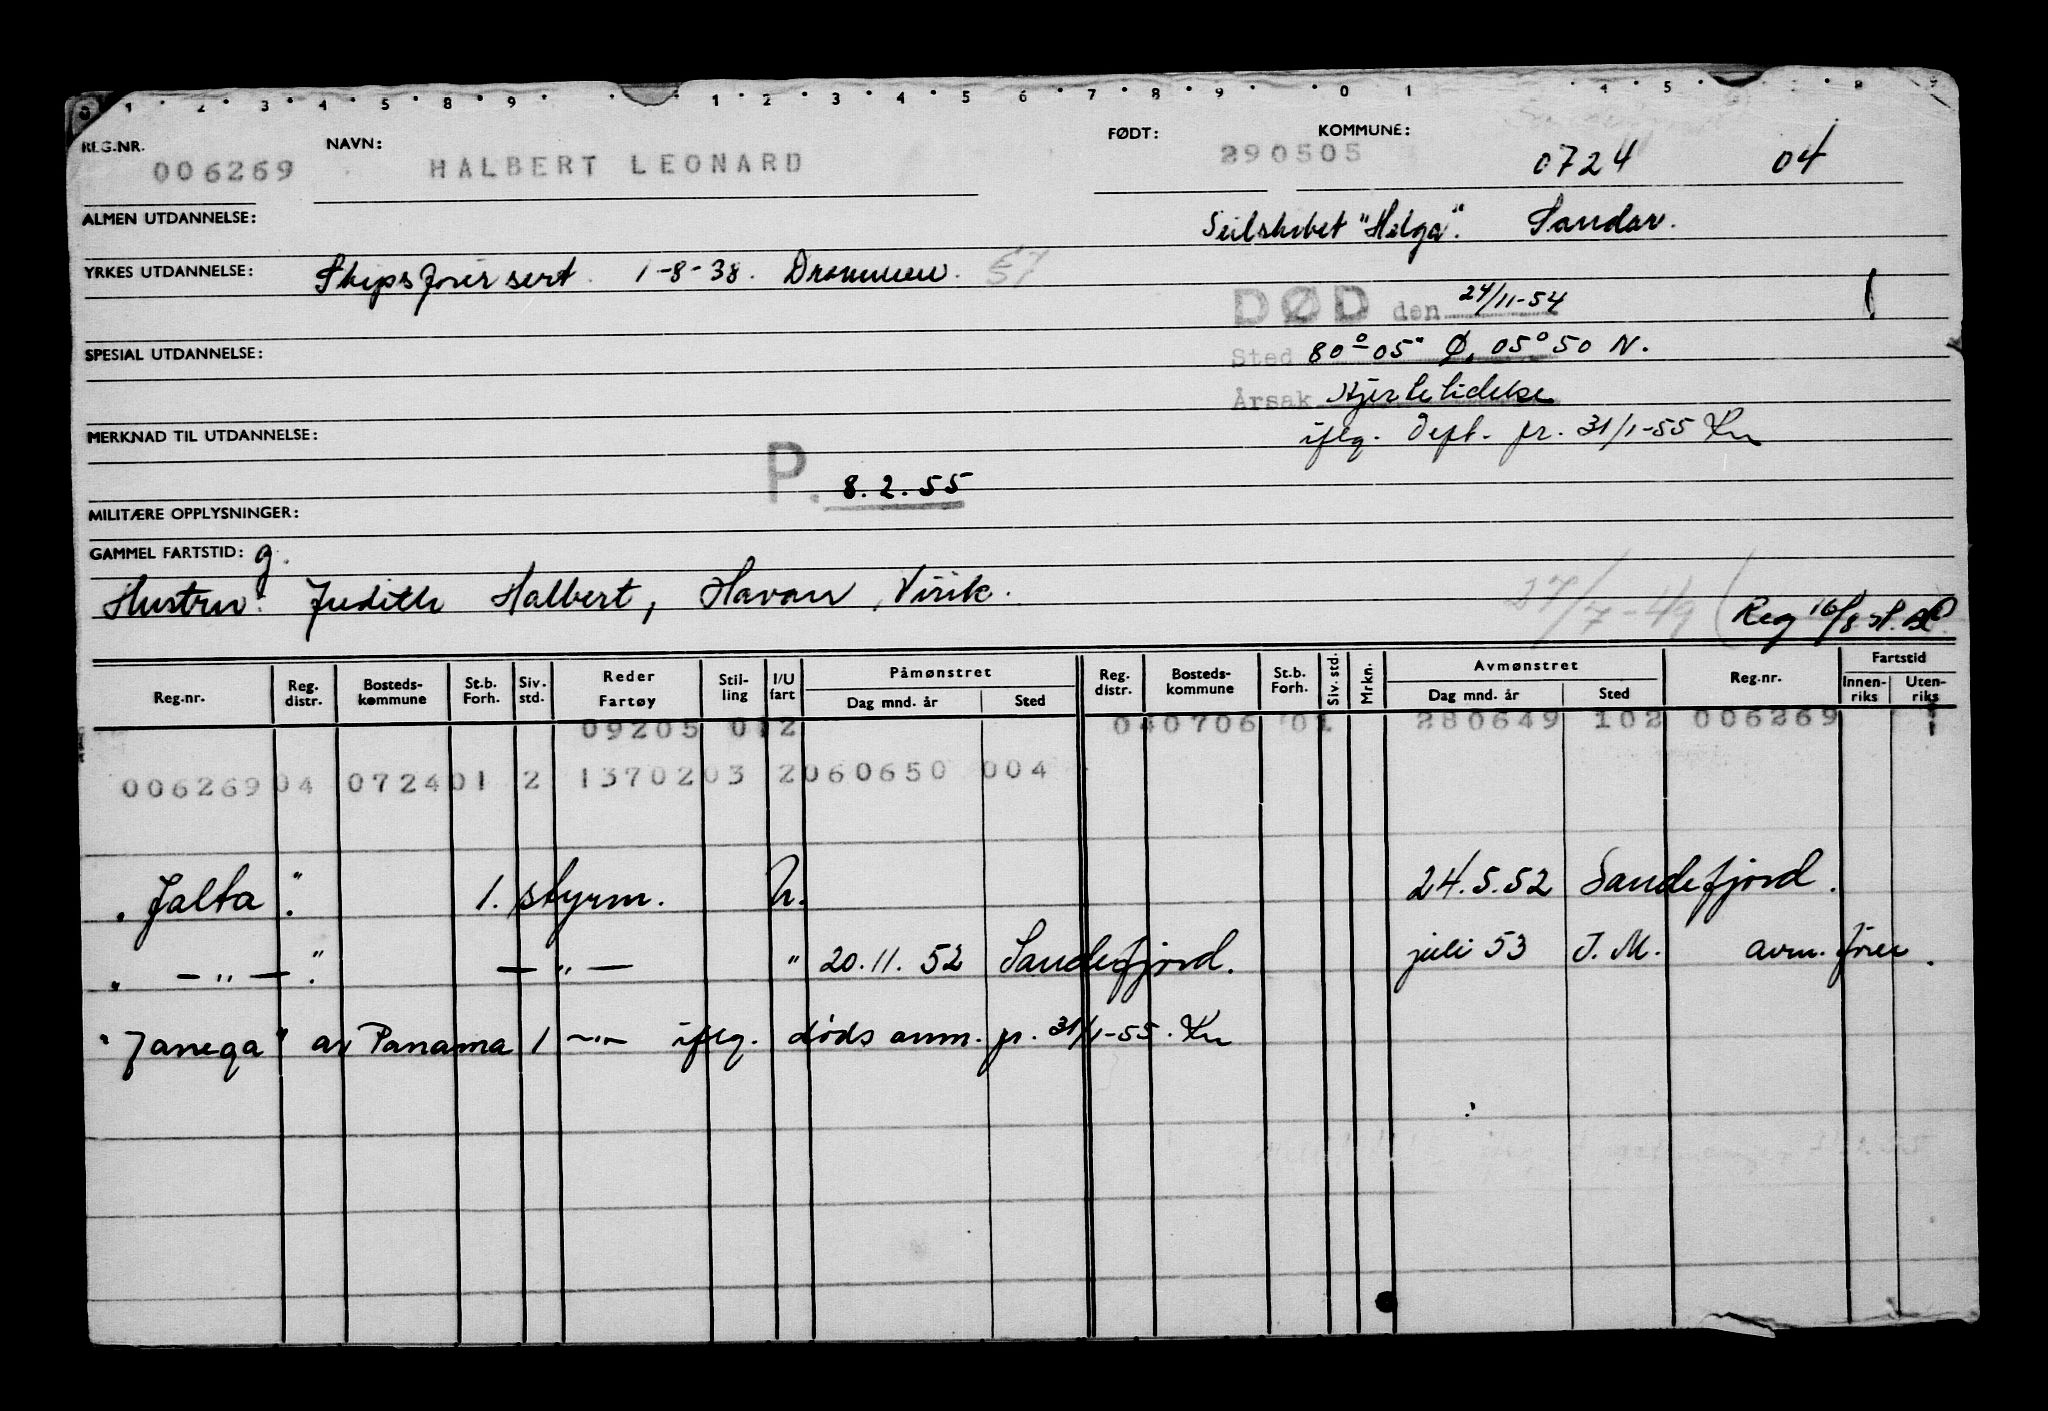 1 2 3 4 5 8 9 1 2 3 4 5 6 7 8 9 0 1 4 5 8 9
REG.NR. NAVN: FØDT: KOMMUNE:
006269 HALBERT LEONARD 290505 0724 04
ALMEN UTDANNELSE: Seilskibet "Helga". Sandar.
YRKES UTDANNELSE: Skipsfører sert. 1-8-38. Drammen. 57
DØD den 24/11-54
SPESIAL UTDANNELSE: Sted 80° 05" Ø, 05° 50 N.
Årsak Hjertelidelse
MERKNAD TIL UTDANNELSE: iflg. Dept. pr. 31/1-55 Kn
P. 8.2.55
MILITÆRE OPPLYSNINGER:
GAMMEL FARTSTID: g.
Hustru: Judith Halbert, Havan, Virik. 27/7-49 Reg 16/8
Reg.nr. Reg. distr. Bosteds-kommune St.b. Forh. Siv. std. Reder Fartøy Stil-ling I/U fart Påmønstret Dag mnd. år Sted Reg. distr. Bosteds-kommune St.b. Forh. Siv. std. Mrkn. Avmønstret Dag mnd. år Sted Reg.nr. Fartstid Innen-riks Uten-riks
09205 012 040706 01 280649 102 006269
006269 04 0724 01 2 13702 03 2 060650 004
"Jalta". 1. styrm. U. 24.5.52 Sandefjord.
" — " — ". — " — " 20.11.52 Sandefjord. juli 53 J.M. avm. fører.
"Janega" av Panama 1 —"— iflg. døds anm. pr. 31/1-55. Kn